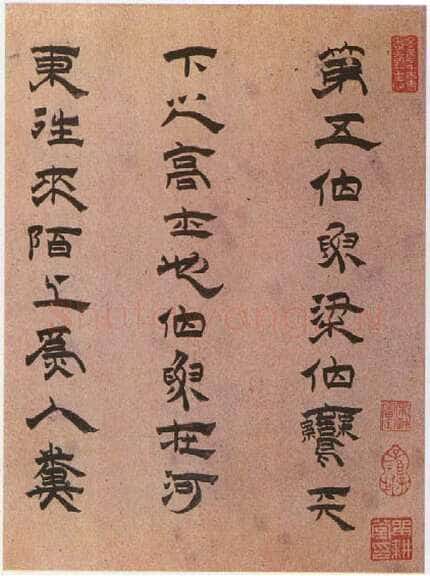 第五伯魚梁伯鸞天
下之高士也伯魚在河
東往來陌上爲人糞